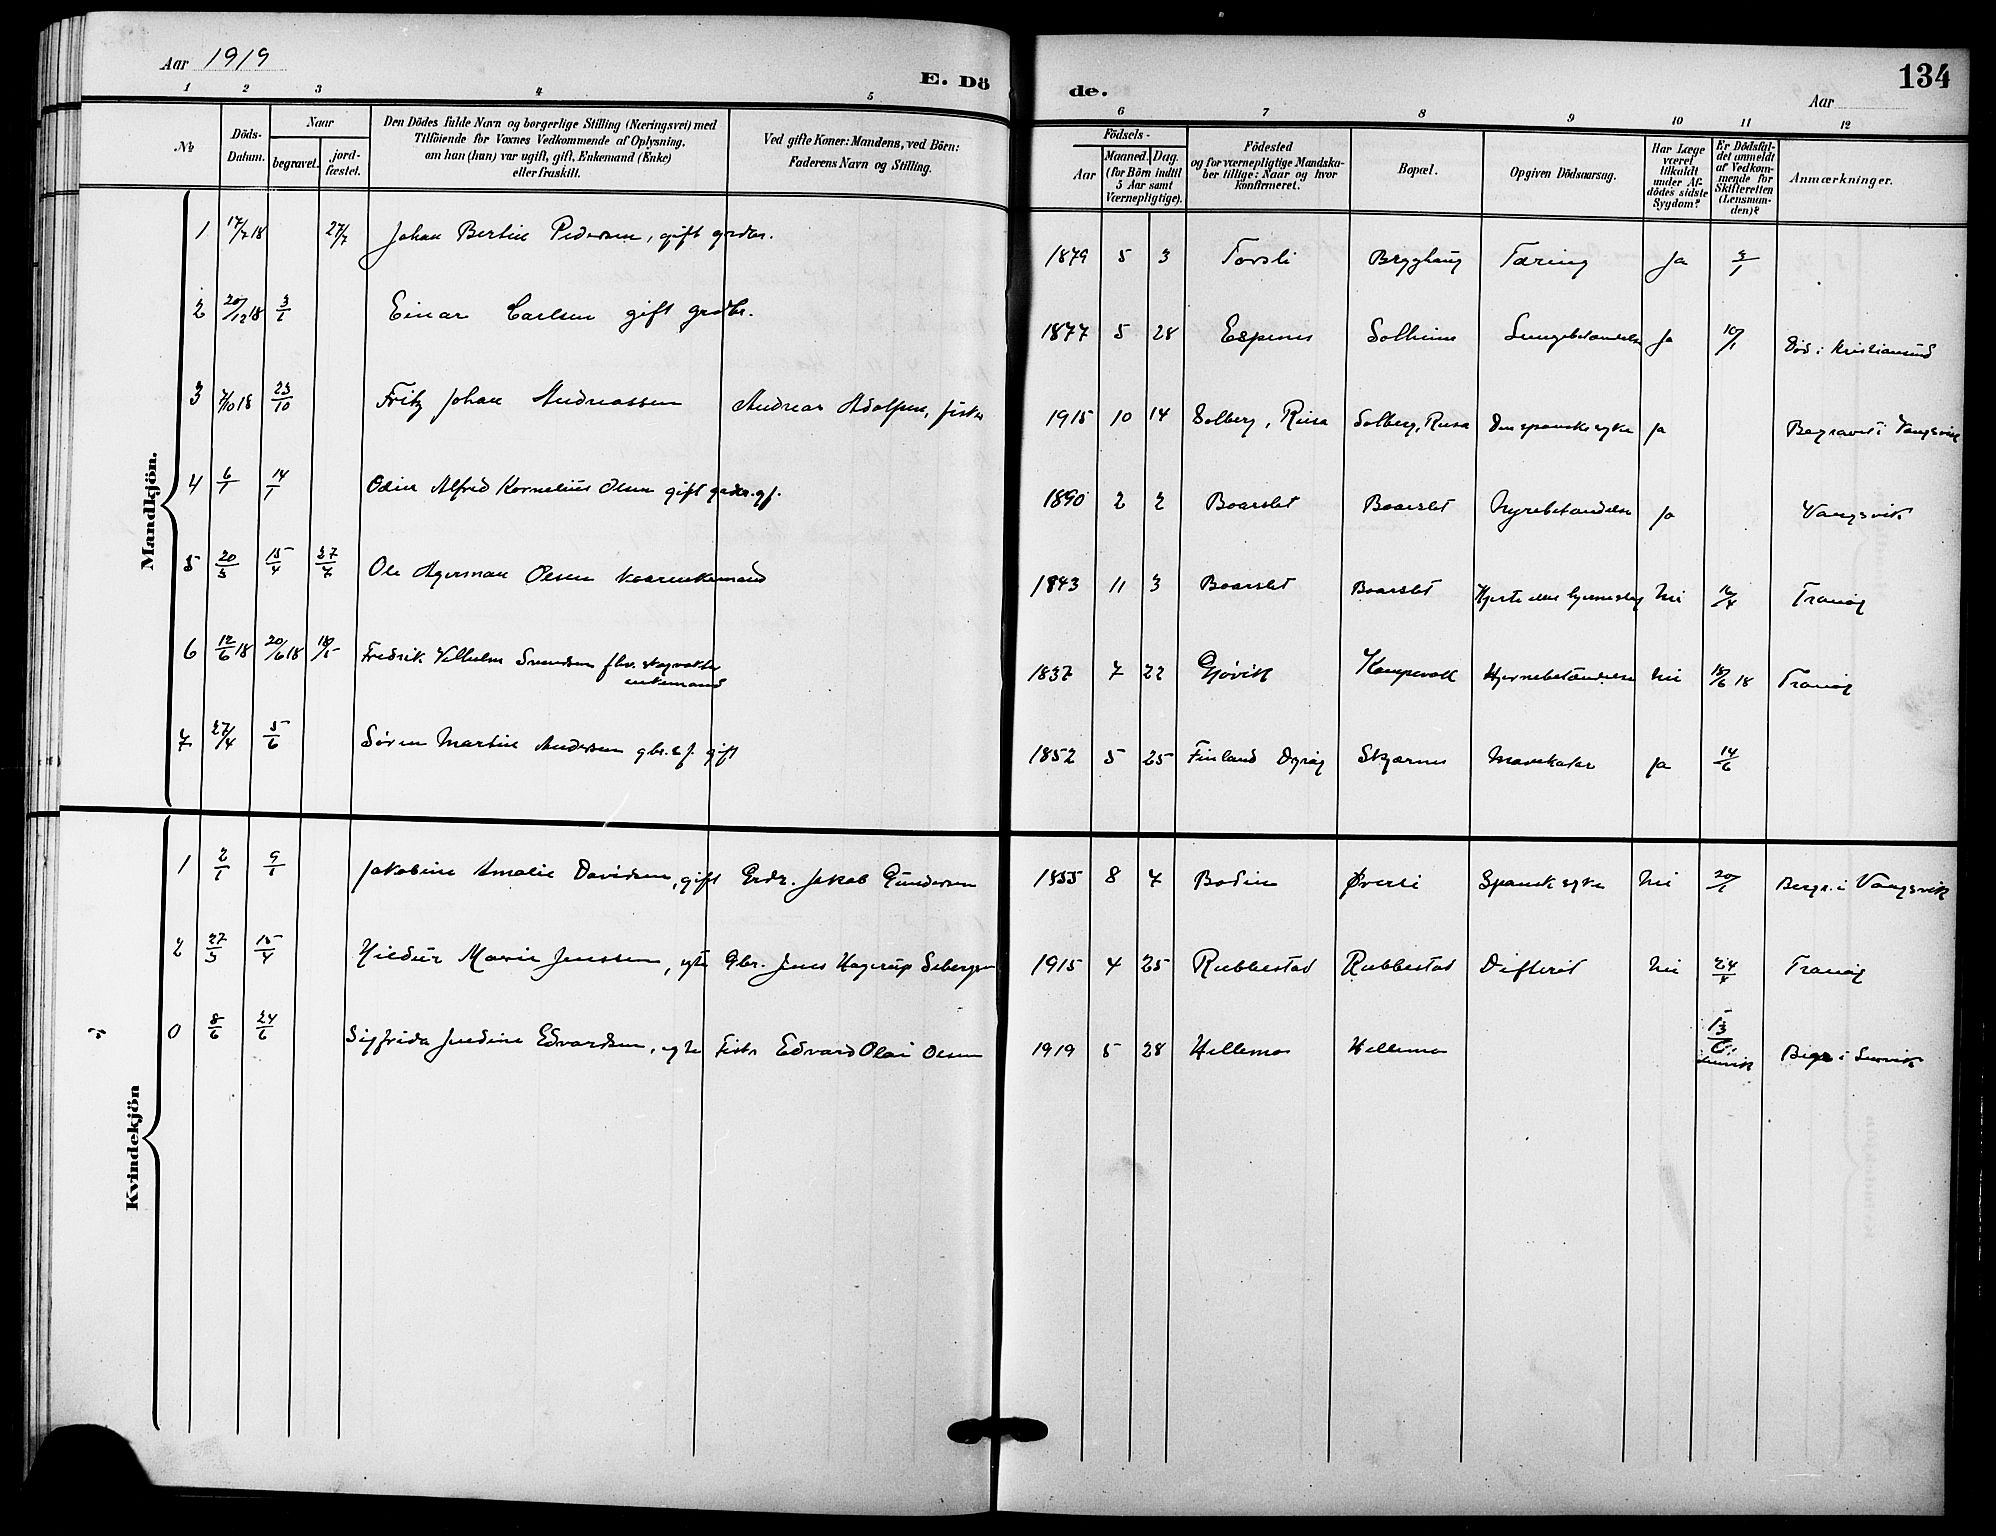 Aar 1919
E. Dö
de.
134
Aar
1 2 3 4 5 6 7 8 9 10 11 12
No
Döds-Datum.
Naar
begravet. jord-fæstet.
Den Dödes fulde Navn og borgerlige Stilling (Næringsvei) med
Tilföiende for Voxnes Vedkommende af Oplysning,
om han (hun) var ugift, gift, Enkemand (Enke)
eller fraskilt.
Ved gifte Koner: Mandens, ved Börn:
Faderens Navn og Stilling.
Födsels-
Aar
Maaned. Dag.
(for Börn indtil
5 Aar samt
Værnepligtige).
Födested
og for værnepligtige Mandska-
ber tillige: Naar og hvor
konfirmeret.
Bopæl.
Opgiven Dödsaarsag.
Har Læge
været
tilkaldt
under Af-
dödes sidste
Sygdom?
Er Dödsfal-
det anmeldt
af Vedkom-
mende for
Skifteretten
(Lensman-
den)?
Anmærkninger.
Mandkjön.
1 17/7 18 27/7 Johan Bertin Pedersen, gift grdbr. 1879 5 3 Torsli Brygghaug Tæring Ja 3/1
2 20/12 18 3/1 Einar Carlsen gift grdbr. 1877 5 28 Espenes Solheim Lungebetændelse Ja 10/1 Död i Kristiansund
3 7/10 18 23/10 Fritz Johan Andreassen Andreas Adolfsen, fisker 1915 10 14 Solberg, Reisa Solberg, Reisa Den spanske syke Ja Begravet i Vangsvik
4 6/1 14/1 Odin Alfred Kornelius Olsen gift 1890 2 2 Baarslet Baarslet Nyrebetændelse Ja Vangsvik
5 20/3 15/4 27/4 Ole Agerman Olsen kaarenkemand 1843 11 3 Baarslet Baarslet Hjerte eller hjerneslag Nei 16/4 Tranöy
6 12/6 18 20/6 18 Fredrik Vilhelm Svendsen fhv. skogvokter
enkemand 1837 7 22 Gjövik Kampevoll Hjernebetændelse Nei 18/6 18 Tranöy
7 27/4 5/6 Sören Martin Andersen gift 1852 5 25 Finland Dyröy Skjærnes Mavekatar Ja 14/6
Kvindekjön
1 2/1 9/1 Jakobine Amalie Davidsen, gift Grdr. Jakob Gundersen 1855 8 4 Bodin Överli Spansk syke Nei 20/1 Begr. i Vangsvik
2 27/3 15/4 Hildur Marie Jenssen, egte Gbr. Jens Hagerup 1915 4 25 Rubbestad Rubbestad Difterit Nei 24/4 Tranöy
0 8/6 24/6 Sigfrida Jendine Edvardsen, egte Fisker Edvard Olai Olsen 1919 5 28 Hellemo Hellemo 13/6 Begr. i